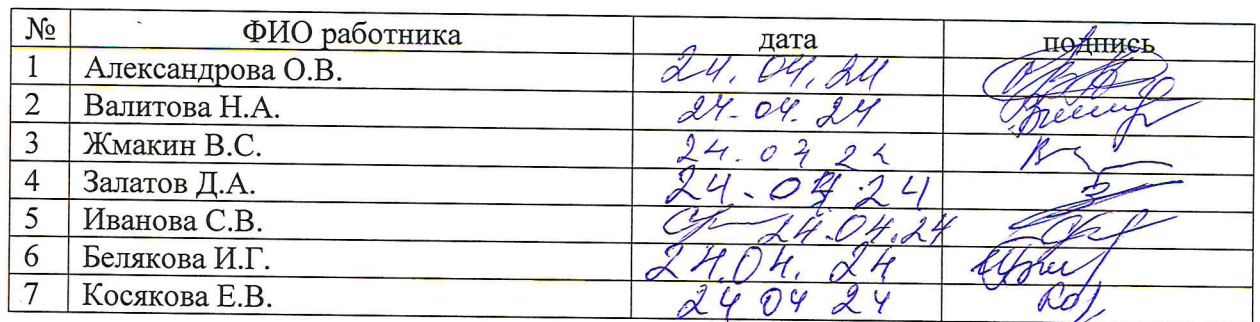 № ФИО работника дата подпись
1 Александрова О.В. 24.04.24
2 Валитова Н.А. 24.04.24
3 Жмакин В.С.
4 Залатов Д.А. 24.04.24
5 Иванова С.В. 24.04.24
6 Белякова И.Г. 24.04.24
7 Косякова Е.В. 24 04 24